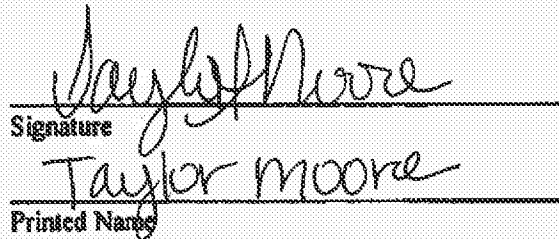 Taylor Moore
Signature
Taylor Moore
Printed Name